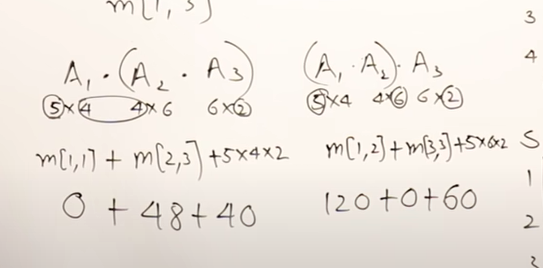 m[1,3]
A₁ · (A₂ · A₃)
5×4 4×6 6×2
m[1,1] + m[2,3] + 5×4×2
0 + 48 + 40
(A₁ · A₂) · A₃
5×4 4×6 6×2
m[1,2] + m[3,3] + 5×6×2
120 + 0 + 60
3
4
S
1
2